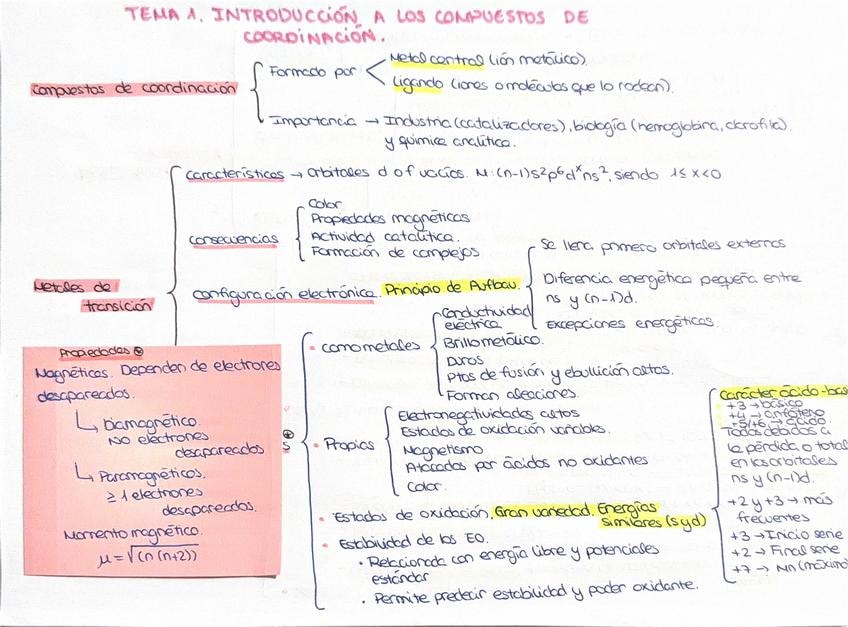 TEMA 1. INTRODUCCIÓN A LOS COMPUESTOS DE
COORDINACIÓN.
Compuestos de coordinación
Formado por
Metal central (ión metálico)
Ligando (iones o moléculas que lo rodean).
Importancia → Industria (catalizadores), biología (hemoglobina, clorofila)
y química analítica.
Metales de
transición
características → orbitales d o f vacíos. M: (n-1)s²p⁶dˣns², siendo 1≤x<0
consecuencias
Color
Propiedades magnéticas
Actividad catalítica.
Formación de complejos
configuración electrónica. Principio de Aufbau.
Se llena primero orbitales externos
Diferencia energética pequeña entre
ns y (n-1)d.
Excepciones energéticas.
Propiedades
Magnéticas. Dependen de electrones
desapareados.
↳ Diamagnético.
No electrones
desapareados
↳ Paramagnéticos.
≥1 electrones
desapareados.
Momento magnético
μ = √(n(n+2))
S
como metales
Conductividad
eléctrica
Brillo metálico.
Duros
Ptos de fusión y ebullición altos.
Forman aleaciones.
Propias
Electronegatividades altas
Estados de oxidación variables.
Magnetismo
Atacados por ácidos no oxidantes
Color.
Estados de oxidación. Gran variedad. Energías
similares (s y d)
carácter ácido-base
+3 → básico
+4 → anfótero
+5/+6 → ácido
Todas debidas a
la pérdida o total
en los orbitales
ns y (n-1)d.
+2 y +3 → más
frecuentes
+3 → Inicio serie
+2 → Final serie
+7 → Mn (máximo)
Estabilidad de los EO.
• Relacionada con energía libre y potenciales
estándar
• Permite predecir estabilidad y poder oxidante.